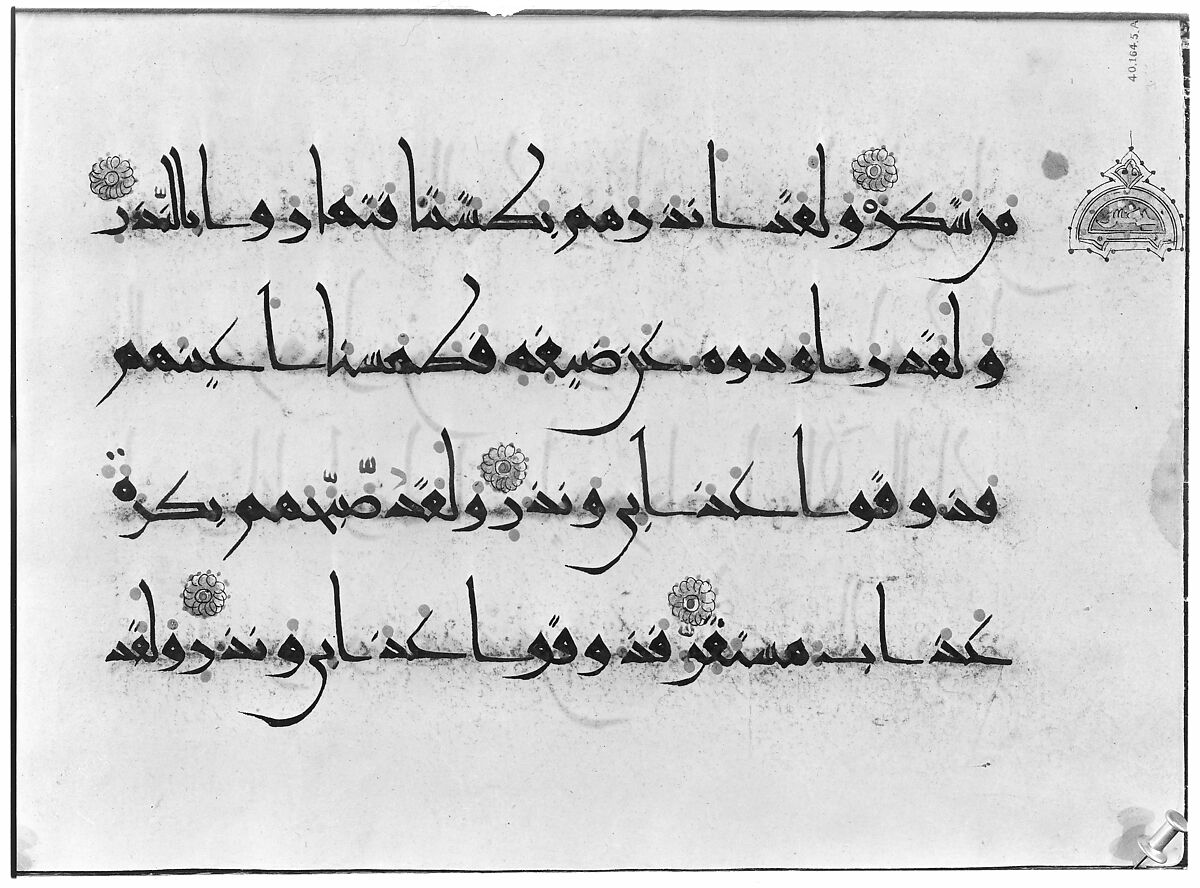 40.164.5.A
من شكر ولقد انذرهم بطشتنا فتماروا بالنذر
ولقد راودوه عن ضيفه فطمسنا اعينهم
فذوقوا عذابي ونذر ولقد صبحهم بكرة
عذاب مستقر فذوقوا عذابي ونذر ولقد